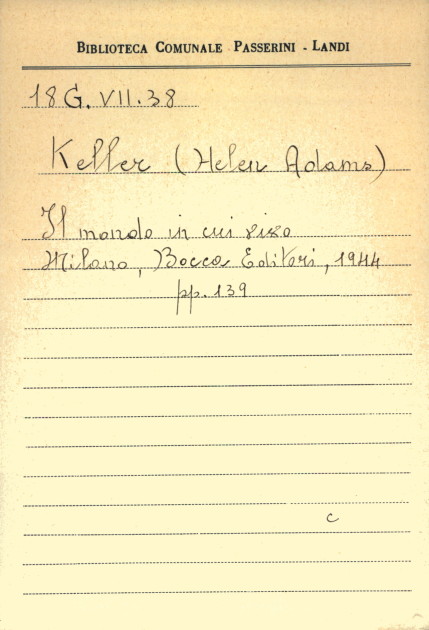 BIBLIOTECA COMUNALE PASSERINI - LANDI
18 G. VII. 38
Keller (Helen Adams)
Il mondo in cui vivo
Milano, Bocca Editori, 1944
pp. 139
c